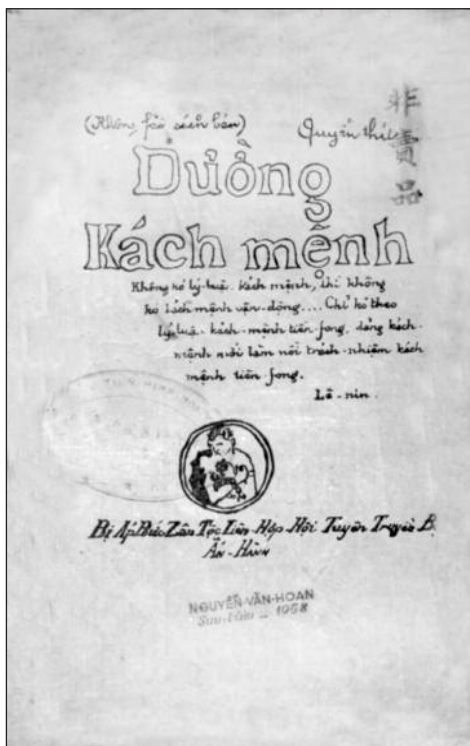 (Không fải sách bán) Quyển thứ
非賣品
Đường
Kách mệnh
Không kó lý luận kách mệnh, thì không
kó kách mệnh vận-động.... Chỉ kó theo
lý luận kách-mệnh tiền fong, đảng kách-
mệnh mới làm nổi trách-nhiệm kách
mệnh tiền-fong.
Lê-nin.
Bị Áp Bức Zân Tộc Liên-Hợp-Hội Tuyên Truyền B.
Ấn-Hành
NGUYỄN-VĂN-HOAN
Sưu-tầm 1968